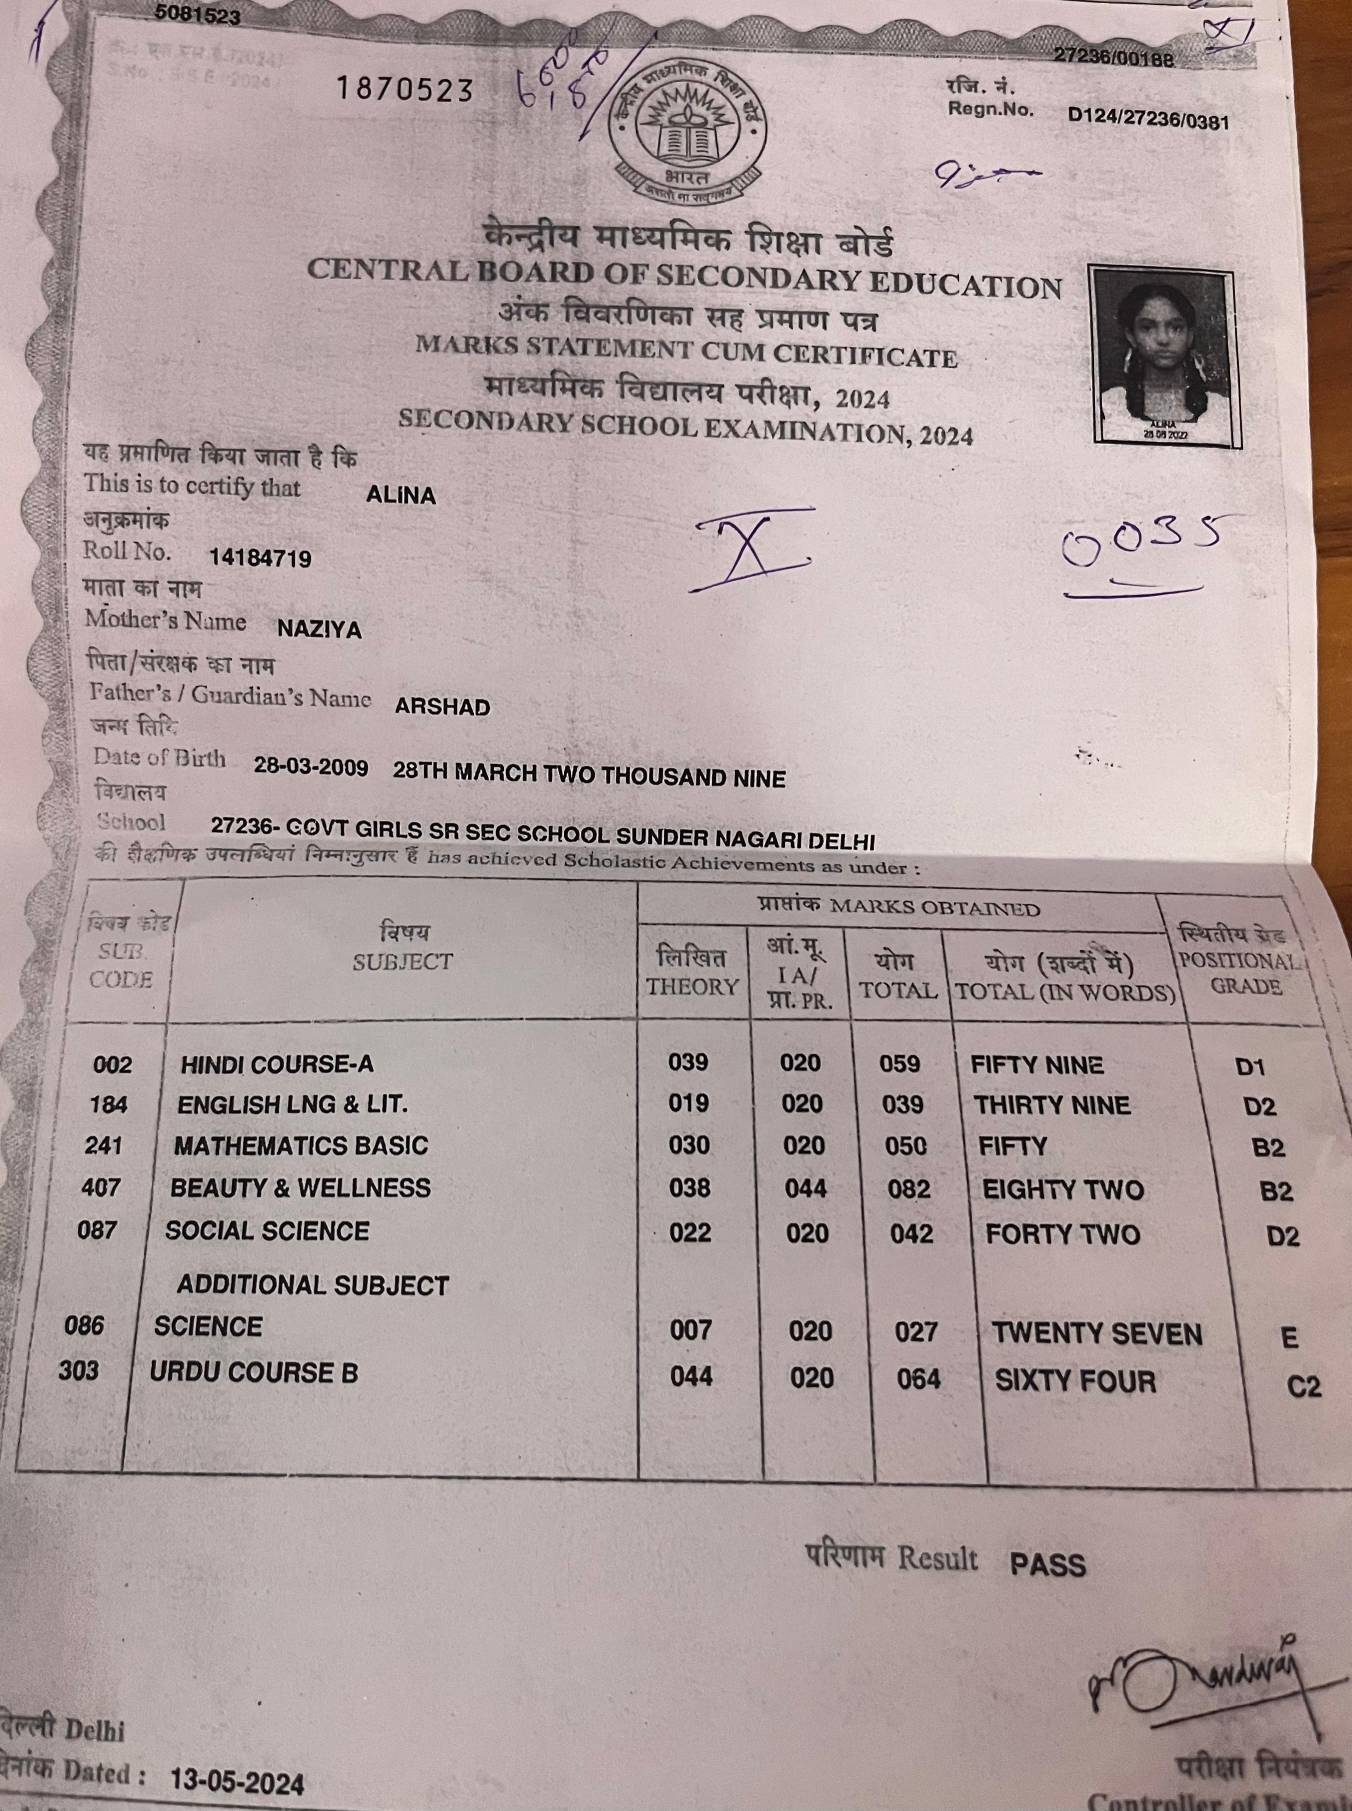 5081523
27236/00188
XI
1870523
रजि. नं.
Regn.No. D124/27236/0381
केन्द्रीय माध्यमिक शिक्षा बोर्ड
भारत
असतो मा सद्गमय
केन्द्रीय माध्यमिक शिक्षा बोर्ड
CENTRAL BOARD OF SECONDARY EDUCATION
अंक विवरणिका सह प्रमाण पत्र
MARKS STATEMENT CUM CERTIFICATE
माध्यमिक विद्यालय परीक्षा, 2024
SECONDARY SCHOOL EXAMINATION, 2024
ALINA
28 08 2022
यह प्रमाणित किया जाता है कि
This is to certify that ALINA
अनुक्रमांक
Roll No. 14184719
X 0035
माता का नाम
Mother's Name NAZIYA
पिता/संरक्षक का नाम
Father's / Guardian's Name ARSHAD
जन्म तिथि
Date of Birth 28-03-2009 28TH MARCH TWO THOUSAND NINE
विद्यालय
School 27236- GOVT GIRLS SR SEC SCHOOL SUNDER NAGARI DELHI
की शैक्षणिक उपलब्धियां निम्नानुसार हैं has achieved Scholastic Achievements as under :
विषय कोड SUB. CODE विषय SUBJECT प्राप्तांक MARKS OBTAINED स्थितीय ग्रेड POSITIONAL GRADE
लिखित THEORY आं.मू. I A/ प्रा. PR. योग TOTAL योग (शब्दों में) TOTAL (IN WORDS)
002 HINDI COURSE-A 039 020 059 FIFTY NINE D1
184 ENGLISH LNG & LIT. 019 020 039 THIRTY NINE D2
241 MATHEMATICS BASIC 030 020 050 FIFTY B2
407 BEAUTY & WELLNESS 038 044 082 EIGHTY TWO B2
087 SOCIAL SCIENCE 022 020 042 FORTY TWO D2
ADDITIONAL SUBJECT
086 SCIENCE 007 020 027 TWENTY SEVEN E
303 URDU COURSE B 044 020 064 SIXTY FOUR C2
परिणाम Result PASS
दिल्ली Delhi
दिनांक Dated : 13-05-2024
परीक्षा नियंत्रक
Controller of Exami